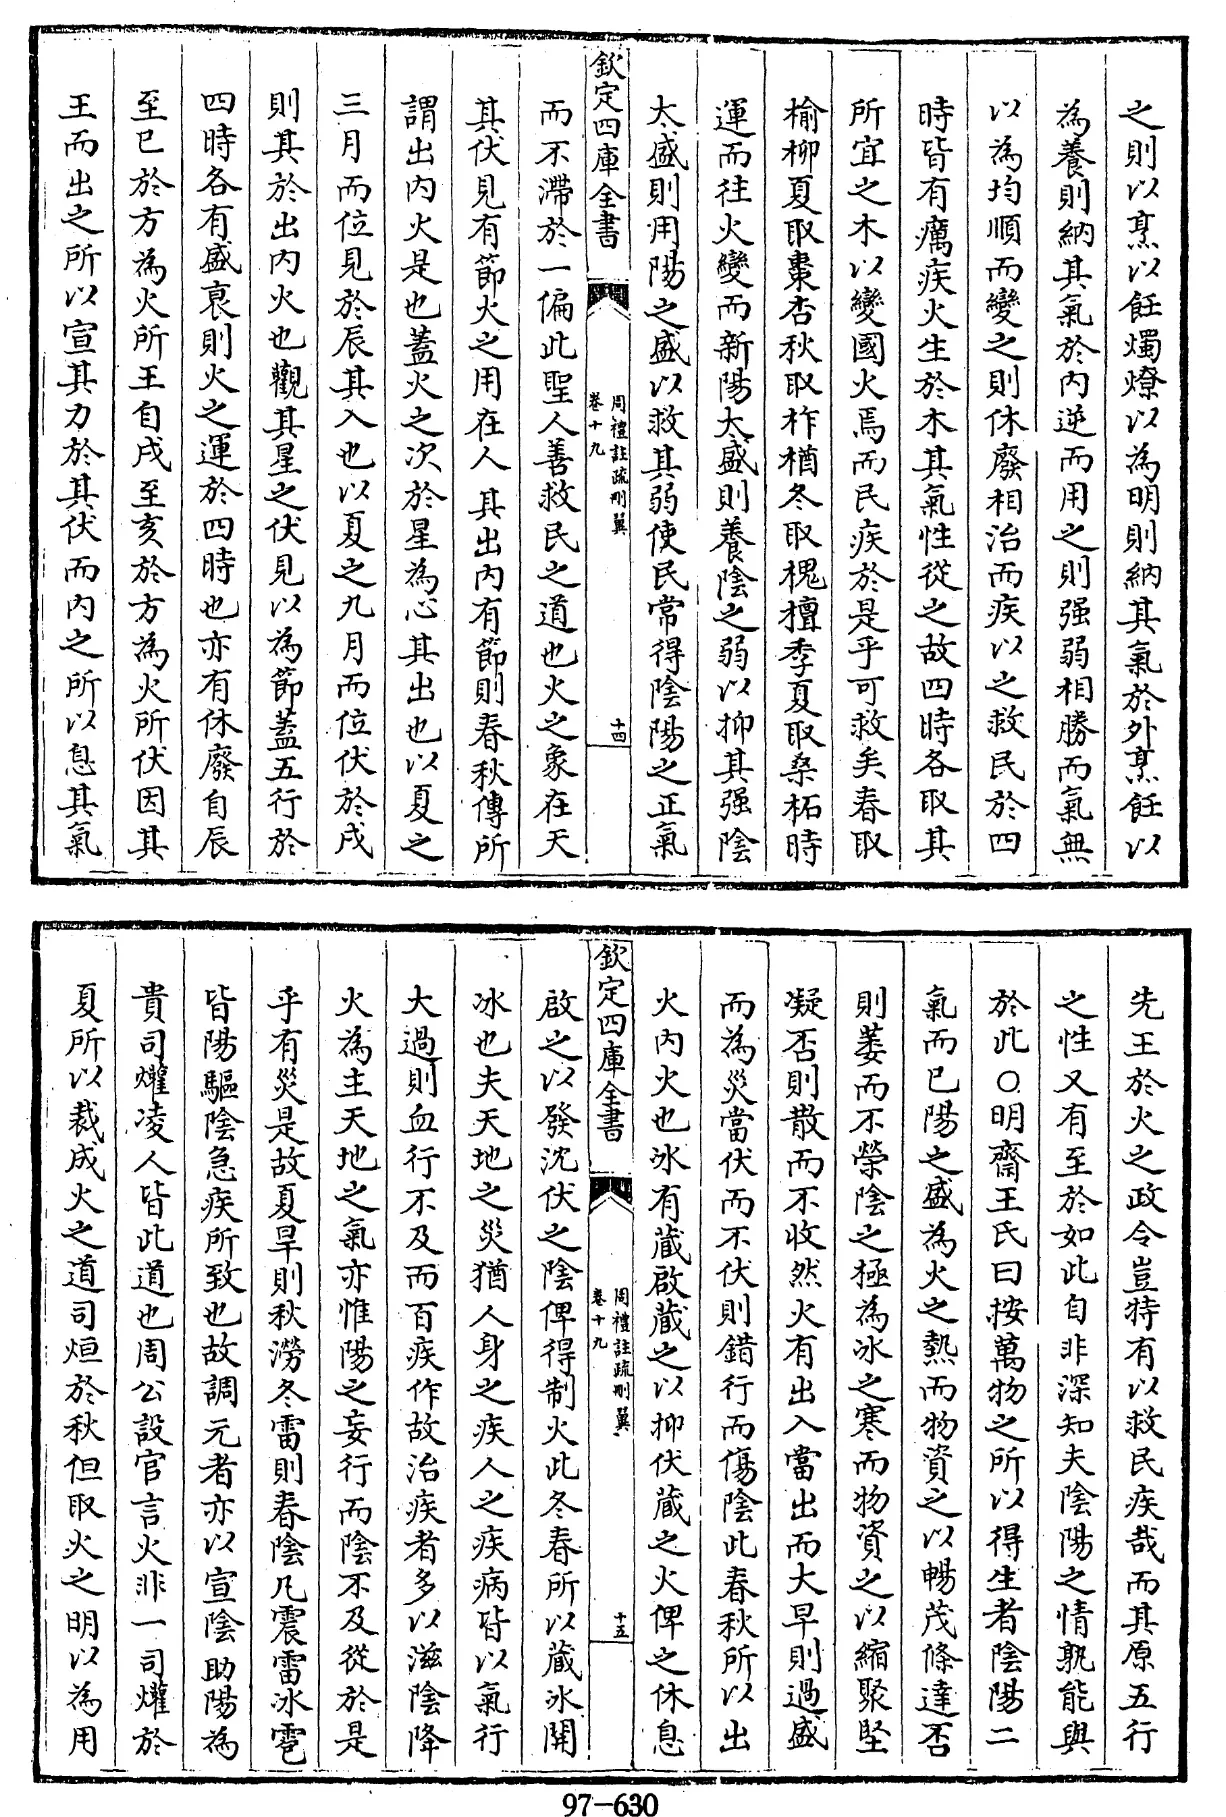 之則以烹以飪燭燎以為明則納其氣於外烹飪以
為養則納其氣於内逆而用之則强弱相勝而氣無
以為均順而變之則休廢相治而疾以之救民於四
時皆有癘疾火生於木其氣性從之故四時各取其
所宜之木以變國火焉而民疾於是乎可救矣春取
榆柳夏取棗杏秋取柞楢冬取槐檀季夏取桑柘時
運而往火變而新陽太盛則養陰之弱以抑其强陰
太盛則用陽之盛以救其弱使民常得陰陽之正氣
欽定四庫全書
周禮註疏刪翼
卷十九
十四
而不滯於一偏此聖人善救民之道也火之象在天
其伏見有節火之用在人其出内有節則春秋傳所
謂出内火是也蓋火之次於星為心其出也以夏之
三月而位見於辰其入也以夏之九月而位伏於戌
則其於出内火也觀其星之伏見以為節蓋五行於
四時各有盛衰則火之運於四時也亦有休廢自辰
至巳於方為火所王自戌至亥於方為火所伏因其
王而出之所以宣其力於其伏而内之所以息其氣
先王於火之政令豈特有以救民疾哉而其原五行
之性又有至於如此自非深知夫陰陽之情孰能與
於此○明齋王氏曰按萬物之所以得生者陰陽二
氣而已陽之盛為火之熱而物資之以暢茂條達否
則萎而不榮陰之極為冰之寒而物資之以縮聚堅
凝否則散而不收然火有出入當出而大旱則過盛
而為災當伏而不伏則錯行而傷陰此春秋所以出
火内火也冰有藏啟藏之以抑伏藏之火俾之休息
欽定四庫全書
周禮註疏刪翼
卷十九
十五
啟之以發沈伏之陰俾得制火此冬春所以藏冰開
冰也夫天地之災猶人身之疾人之疾病皆以氣行
大過則血行不及而百疾作故治疾者多以滋陰降
火為主天地之氣亦惟陽之妄行而陰不及從於是
乎有災是故夏旱則秋澇冬雷則春陰凡震雷冰雹
皆陽驅陰急疾所致也故調元者亦以宣陰助陽為
貴司爟凌人皆此道也周公設官言火非一司爟於
夏所以裁成火之道司烜於秋但取火之明以為用
97-630